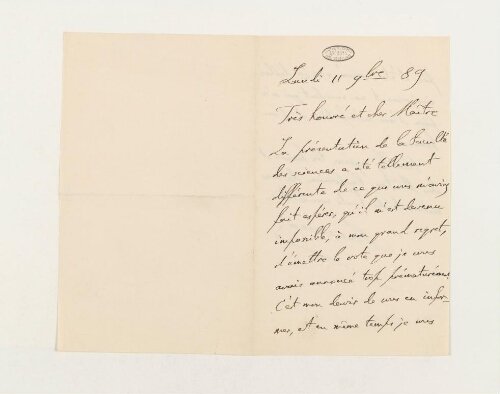 Lundi 11 9bre 89
Très honoré et cher Maître
La présentation de la Faculté
des sciences a été tellement
différente de ce que vous m'aviez
fait espérer, qu'il m'est devenu
impossible, à mon grand regret,
d'émettre le vote que je vous
avais annoncé trop prématurément
C'est mon devoir de vous en infor-
mer, et en même temps je vous